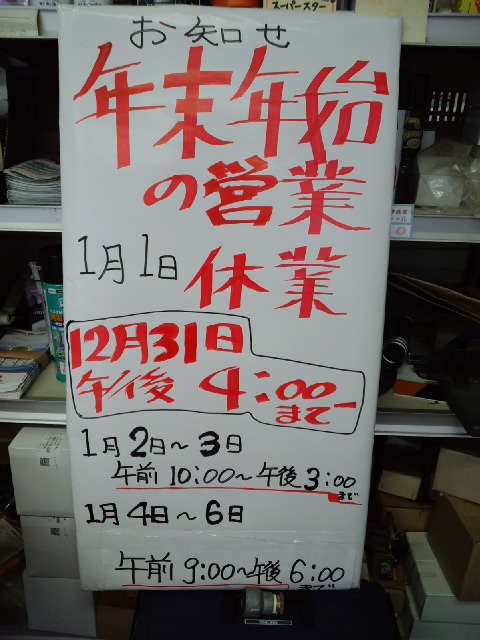 スーパースター
お知せ
年末年始
の営業
1月1日 休業
12月31日
午後 4:00
まで
1月2日～3日
午前10:00～午後3:00
まで
1月4日～6日
午前9:00～午後6:00
まで